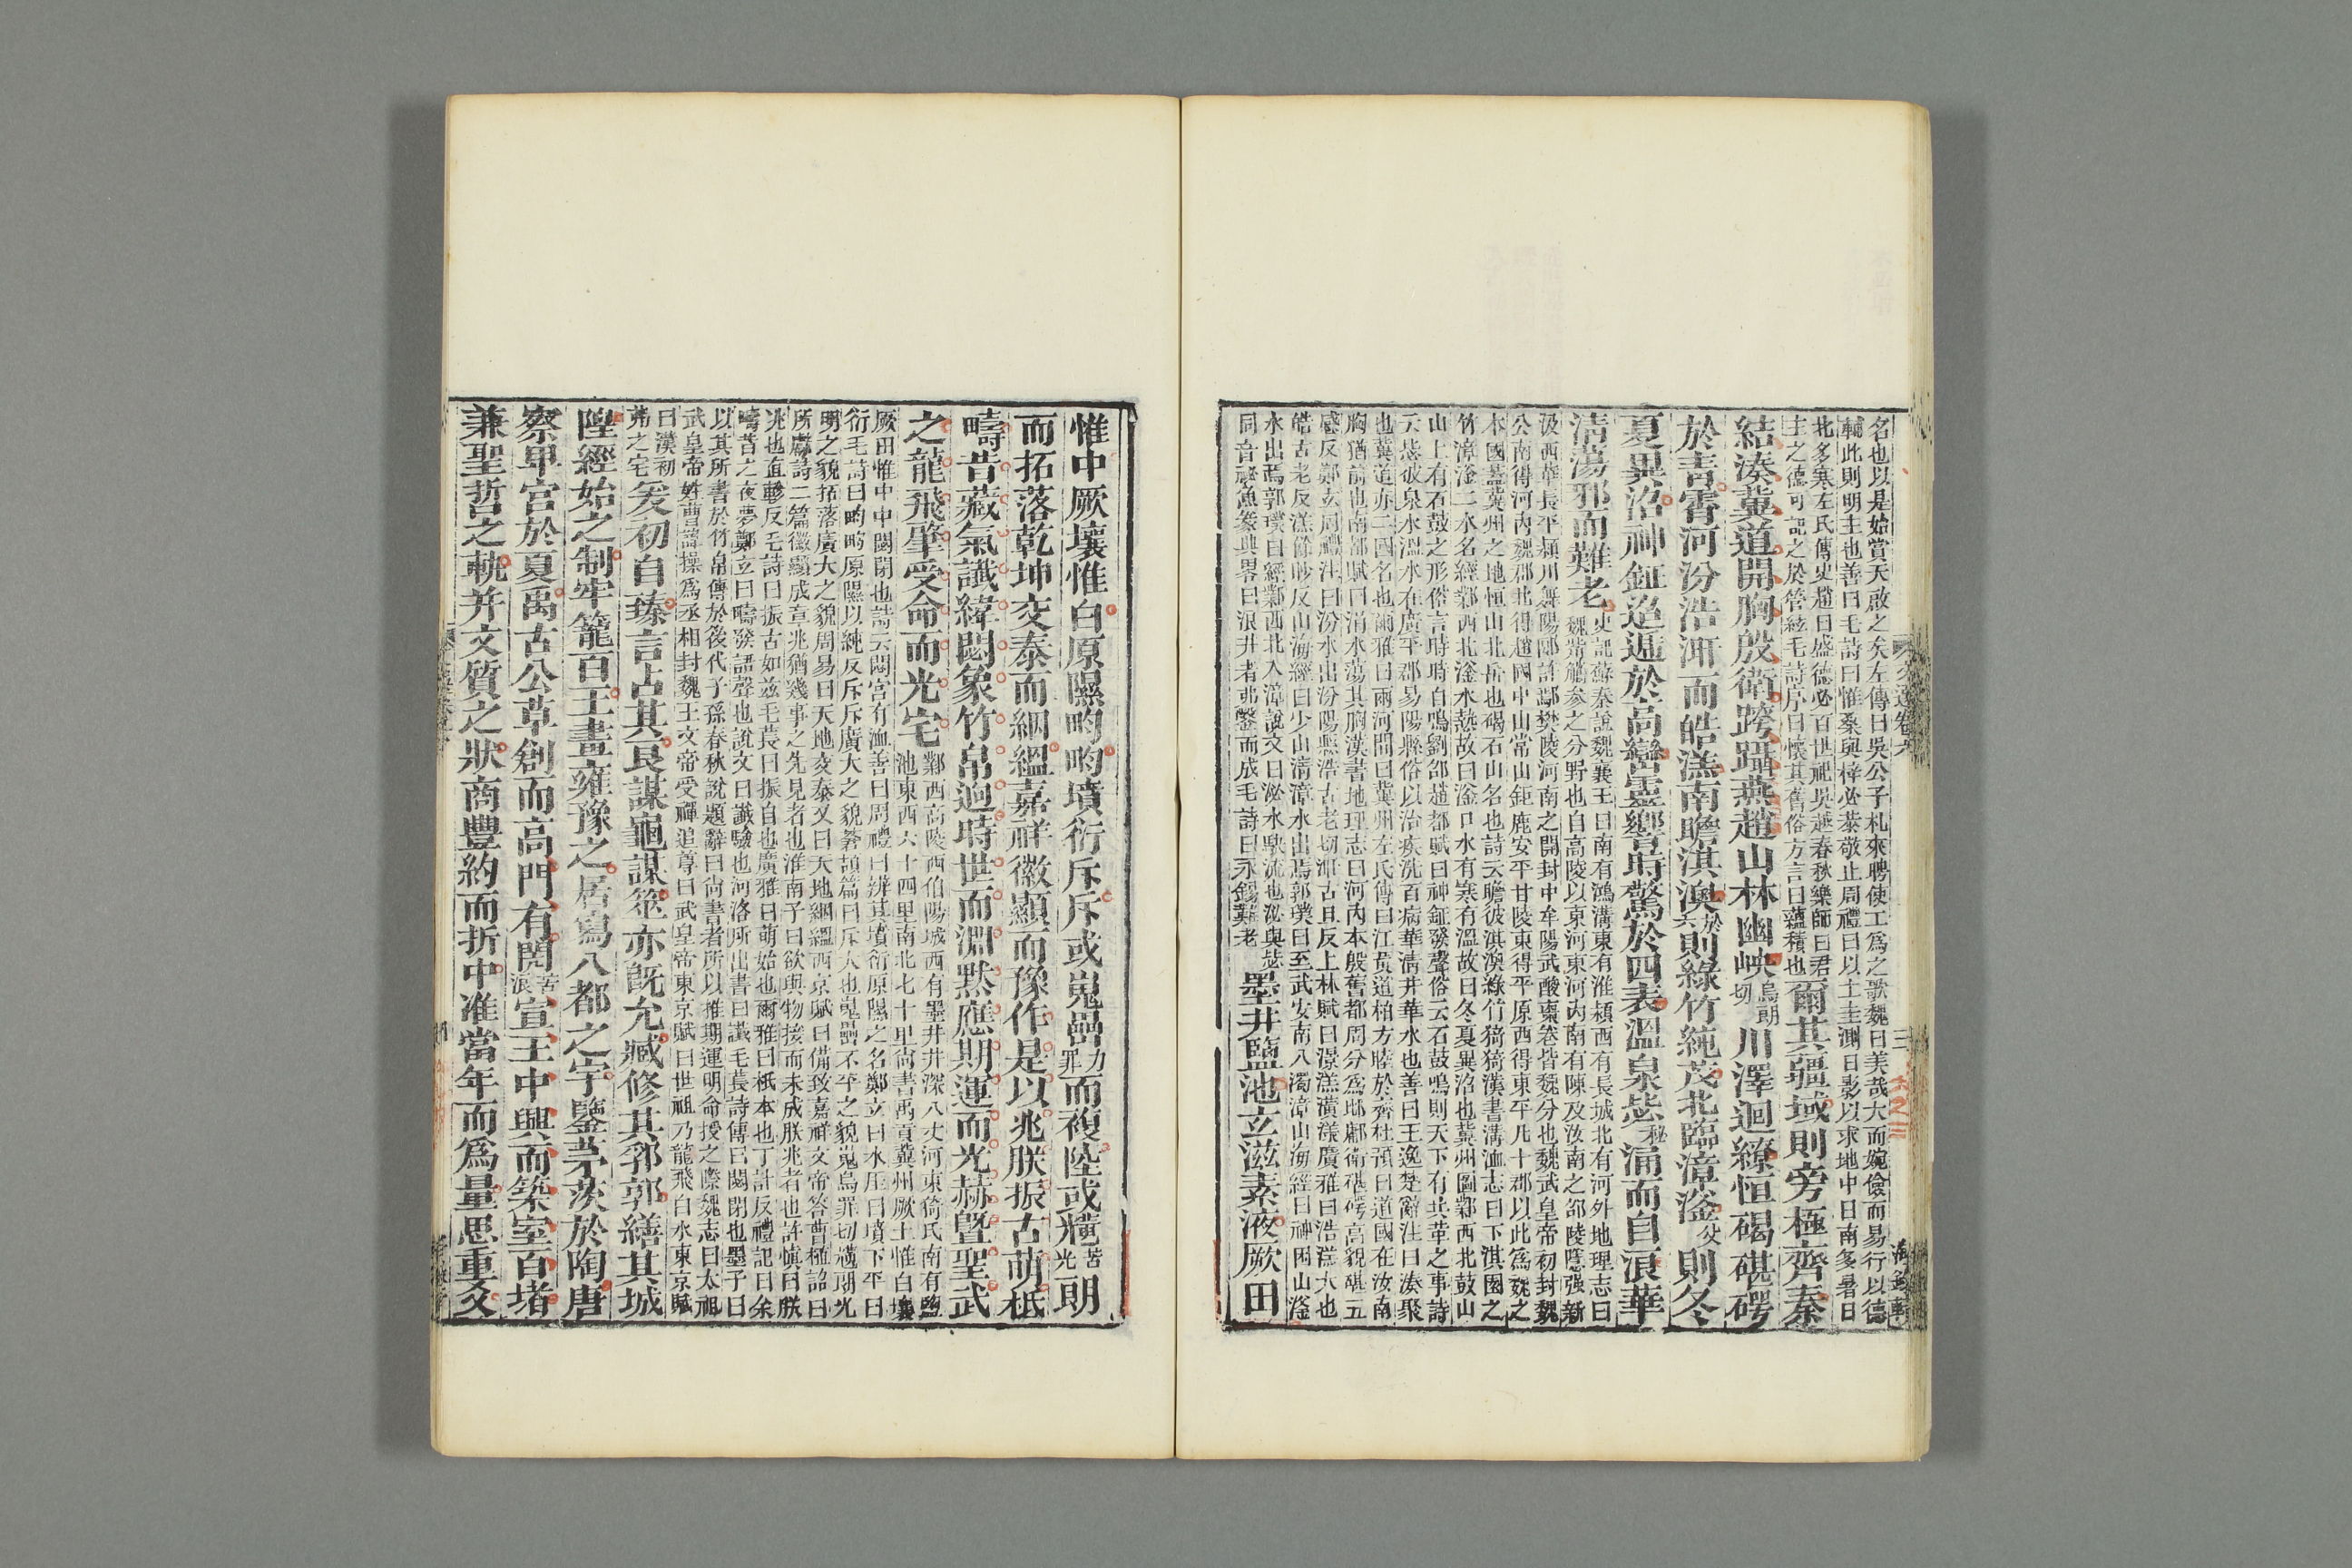 名也以是始賞天啟之矣左傳曰吳公子札來聘使工爲之歌魏曰美哉大而婉儉而易行以德
輔此則明主也善曰毛詩曰惟桑與梓必恭敬止周禮曰以土圭測日影以求地中日南多暑日
北多寒左氏傳史趙曰盛德必百世祀吳越春秋樂師曰君
王之德可記之於管絃毛詩序曰懷其舊俗方言曰蘊積也爾其疆域則旁極齊秦
結湊冀道開胸殷衛跨躡燕趙山林幽岟烏朗切川澤迴繚恒碣碪碍
於青霄河汾浩涆而皓溔南瞻淇澳於六則綠竹純茂北臨漳滏父則冬
夏異沼神鉦迢遞於高巒靈響時驚於四表溫泉毖秘涌而自浪華
清蕩邪而難老史記蘇秦說魏襄王曰南有鴻溝東有淮潁西有長城北有河外地理志曰
魏觜觿參之分野也自高陵以東河東河內南有陳及汝南之邵陵㶏强新
汲西華長平潁川舞陽郾許鄢陵河南之開封中牟陽武酸棗卷皆魏分也魏武皇帝初封魏
公南得河內魏郡北得趙國中山常山鉅鹿安平甘陵東得平原西得東平凡十郡以此爲魏之
本國蓋冀州之地恒山北岳也碣石山名也詩云瞻彼淇澳綠竹猗猗漢書溝洫志曰下淇園之
竹漳滏二水名經鄴西北滏水熱故曰滏口水有寒有溫故曰冬夏異沼也冀州圖鄴西北鼓山
山上有石鼓之形俗言時時自鳴劉邵趙都賦曰神鉦發聲俗云石鼓鳴則天下有兵革之事詩
云毖彼泉水溫水在廣平郡易陽縣俗以治疾洗百病華清井華水也善曰王逸楚辭注曰湊聚
也冀道亦二國名也爾雅曰兩河間曰冀州左氏傳曰江黃道柏方睦於齊杜預曰道國在汝南
胸猶前也南都賦曰淯水蕩其胸漢書地理志曰河內本殷舊都周分爲邶鄘衛碪碍高貌碪五
感反鄭玄周禮注曰汾水出汾陽縣浩古老切涆古旦反上林賦曰灝溔潢漾廣雅曰浩溔大也
皓古老反溔餘眇反山海經曰少山清漳水出焉郭璞曰至武安南入濁漳山海經曰神囷山滏
水出焉郭璞曰經鄴西北入漳說文曰泌水駃流也泌與毖
同音豢魚豢典畧曰浪井者弗鑿而成毛詩曰永錫難老墨井鹽池玄滋素液厥田
惟中厥壤惟白原隰畇畇墳衍斥斥或嵬罍力罪而複陸或㸌苦光朗
而拓落乾坤交泰而絪縕嘉祥徽顯而豫作是以兆朕振古萌柢
疇昔藏氣讖緯閟象竹帛迥時世而淵默應期運而光赫曁聖武
之龍飛肇受命而光宅鄴西高陵西伯陽城西有墨井井深八丈河東猗氏南有鹽
池東西六十四里南北七十里尚書禹貢冀州厥土惟白壤
厥田惟中中閟閉也詩云閟宮有洫善曰周禮曰辨其墳衍原隰之名鄭玄曰水厓曰墳下平曰
衍毛詩曰畇畇原隰以純反斥斥廣大之貌蒼頡篇曰斥大也嵬罍不平之貌嵬烏罪切爌朗光
明之貌拓落廣大之貌周易曰天地交泰又曰天地絪縕西京賦曰備致嘉祥文帝答曹植詔曰
所獻詩二篇徽顯成章兆猶幾事之先見者也淮南子曰欲與物接而未成朕兆者也許愼曰朕
兆也直軫反毛詩曰振古如茲毛萇曰振自也廣雅曰萌始也爾雅曰柢本也丁計反禮記曰余
疇昔之夜夢鄭玄曰疇發語聲也說文曰讖驗也河洛所出書曰讖毛萇詩傳曰閟閉也墨子曰
以其所書於竹帛傳於後代子孫春秋說題辭曰尚書者所以推期運明命授之際魏志曰太祖
武皇帝姓曹諱操爲丞相封魏王文帝受禪追尊曰武皇帝東京賦曰世祖乃龍飛白水東京賦
曰漢初
弗之宅爰初自臻言占其良謀龜謀筮亦旣允臧修其郛郭繕其城
隍經始之制牢籠百王畫雍豫之居寫八都之宇鑒茅茨於陶唐
察卑宮於夏禹古公草創而高門有閌苦浪宣王中興而築室百堵
兼聖哲之軌并文質之狀商豐約而折中准當年而爲量思重爻